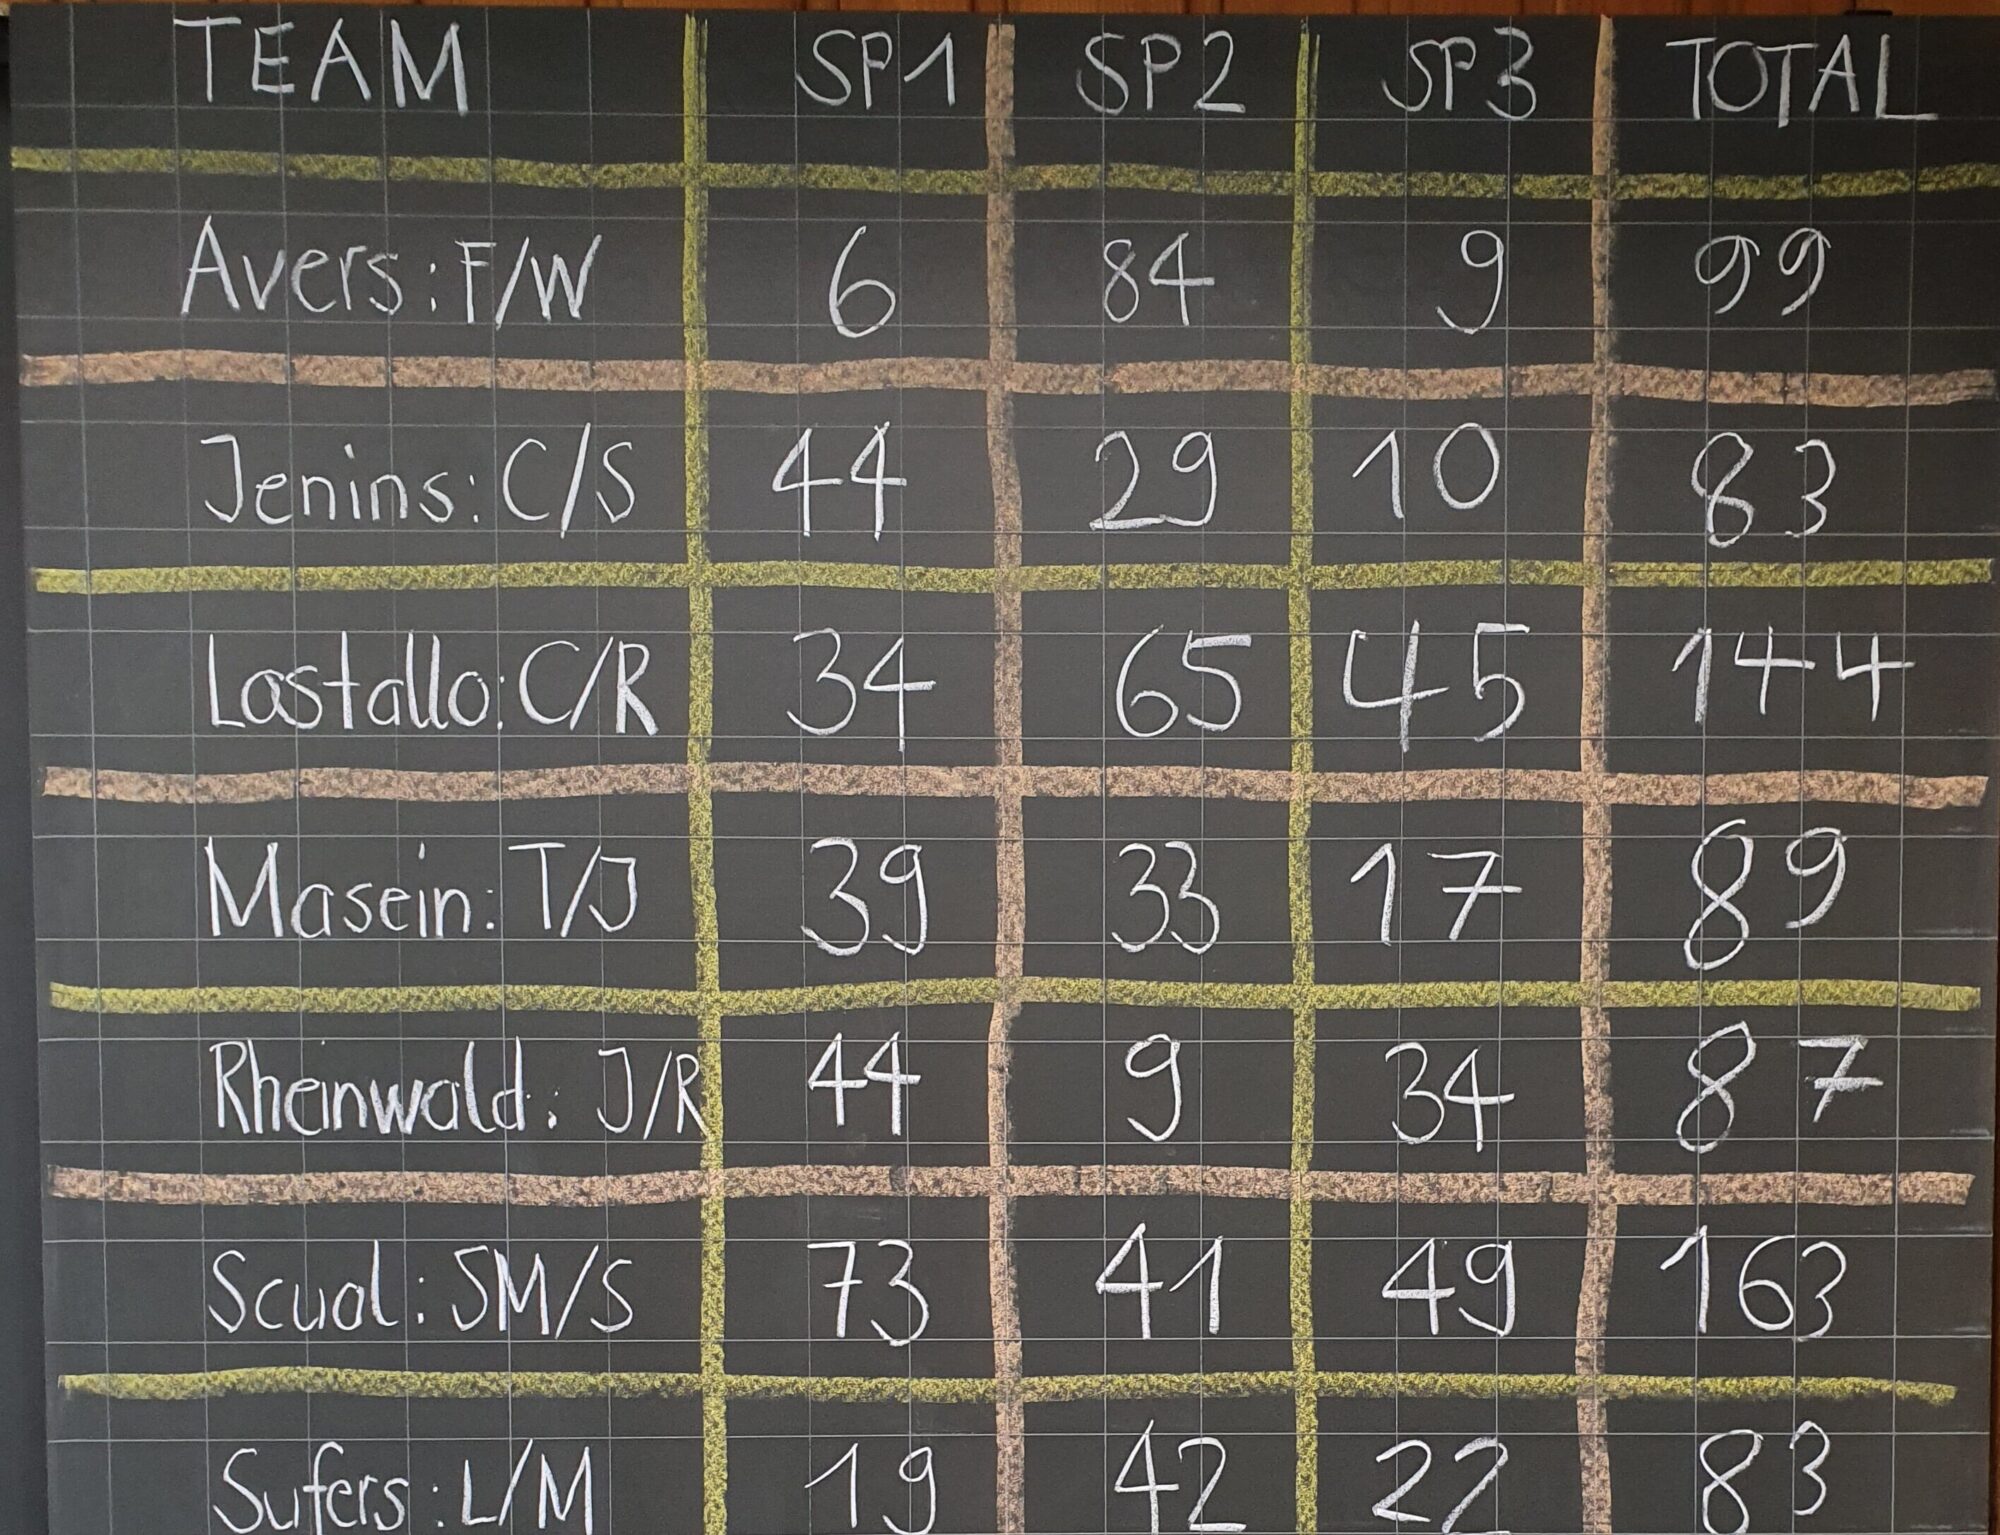 TEAM SP1 SP2 SP3 TOTAL
Avers: F/W 6 84 9 99
Jenins: C/S 44 29 10 83
Lostallo: C/R 34 65 45 144
Masein: T/J 39 33 17 89
Rheinwald: J/R 44 9 34 87
Scuol: SM/S 73 41 49 163
Sufers: L/M 19 42 22 83